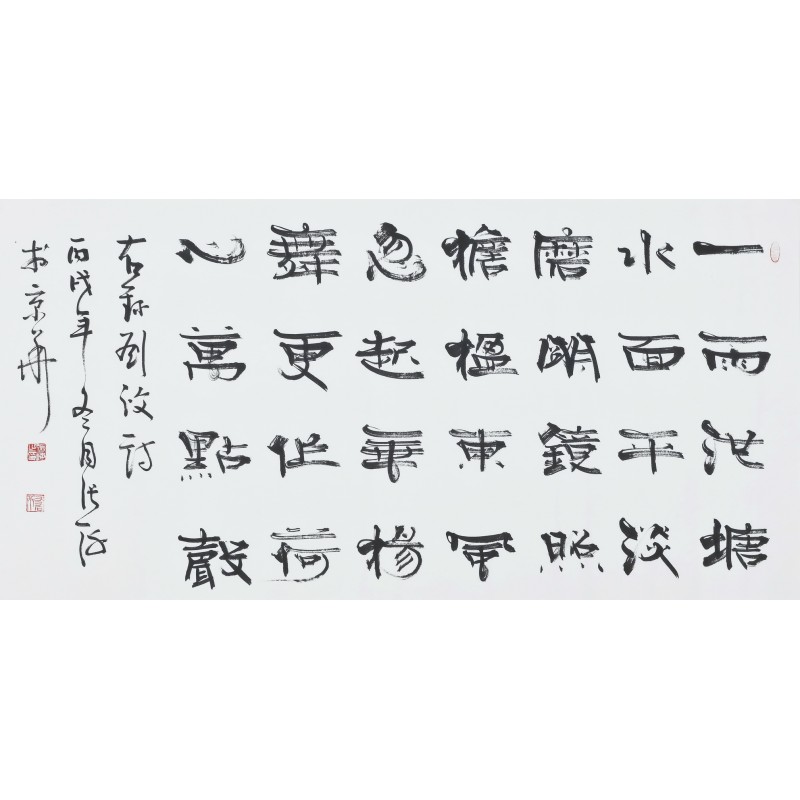 一雨池塘
水面平淡
磨明鏡照
檐楹東風
忽起垂楊
舞更作荷
心萬點聲
右録劉攽詩
丙戌年冬月張
於京華